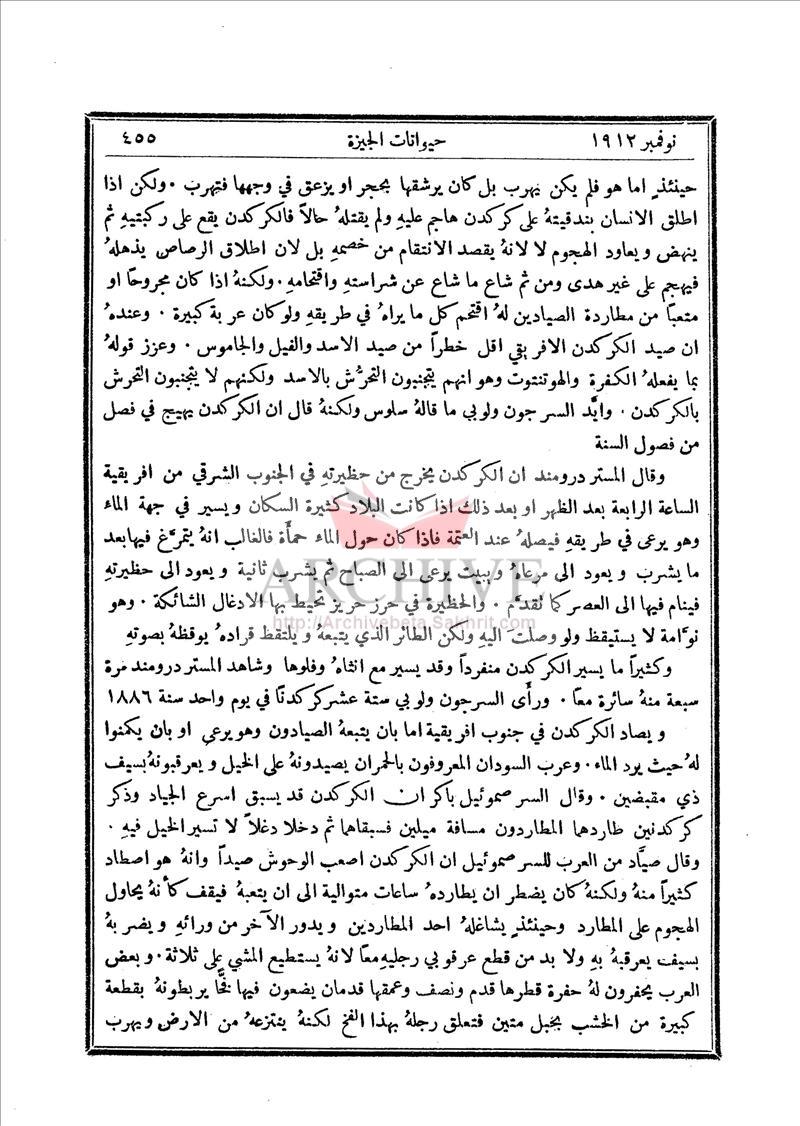 نوفمبر ١٩١٢ حيوانات الجيزة ٤٥٥
حينئذٍ اما هو فلم يكن يهرب بل كان يرشقها بحجر او يزعق في وجهها فتهرب . ولكن اذا
اطلق الانسان بندقيتهُ على كركدن هاجم عليهِ ولم يقتلهُ حالاً فالكركدن يقع على ركبتيهِ ثم
ينهض ويعاود الهجوم لا لانهُ يقصد الانتقام من خصمهِ بل لان اطلاق الرصاص يذهلهُ
فيهجم على غير هدى ومن ثم شاع ما شاع عن شراسته واقتحامهِ . ولكنهُ اذا كان مجروحًا او
متعبًا من مطاردة الصيادين لهُ اقتحم كل ما يراهُ في طريقهِ ولو كان عربة كبيرة . وعندهُ
ان صيد الكركدن الافريقي اقل خطراً من صيد الاسد والفيل والجاموس . وعزز قولهُ
بما يفعلهُ الكفرة والهوتنتوت وهو انهم يتجنبون التحرُّش بالاسد ولكنهم لا يتجنبون التحرش
بالكركدن . وايَّد السر جون ولوبي ما قالهُ سلوس ولكنهُ قال ان الكركدن يهيج في فصل
من فصول السنة
وقال المستر درومند ان الكركدن يخرج من حظيرتهِ في الجنوب الشرقي من افريقية
الساعة الرابعة بعد الظهر او بعد ذلك اذا كانت البلاد كثيرة السكان ويسير في جهة الماء
وهو يرعى في طريقهِ فيصلهُ عند العتمة فاذا كان حول الماء حمأَة فالغالب انهُ يتمرَّغ فيها بعد
ما يشرب ويعود الى مرعاهُ ويبيت يرعى الى الصباح ثم يشرب ثانية ويعود الى حظيرتهِ
فينام فيها الى العصر كما تقدَّم . والحظيرة في حرز حريز تحيط بها الادغال الشائكة . وهو
نوَّامة لا يستيقظ ولو وصلتَ اليهِ ولكن الطائر الذي يتبعهُ ويلتقظ قرادهُ يوقظهُ بصوتهِ
وكثيراً ما يسير الكركدن منفرداً وقد يسير مع انثاهُ وفلوها وشاهد المستر درومند مرة
سبعة منهُ سائرة معاً . ورأَى السر جون ولوبي ستة عشر كركدنًا في يوم واحد سنة ١٨٨٦
ويصاد الكركدن في جنوب افريقية اما بان يتبعهُ الصيادون وهو يرعى او بان يكمنوا
لهُ حيث يرد الماء . وعرب السودان المعروفون بالحمران يصيدونهُ على الخيل ويعرقبونهُ بسيف
ذي مقبضين . وقال السر صموئيل باكر ان الكركدن قد يسبق اسرع الجياد وذكر
كركدنين طاردهما المطاردون مسافة ميلين فسبقاهما ثم دخلا دغلاً لا تسير الخيل فيهِ .
وقال صيَّاد من العرب للسر صموئيل ان الكركدن اصعب الوحوش صيداً وانهُ هو اصطاد
كثيراً منهُ ولكنهُ كان يضطر ان يطاردهُ ساعات متوالية الى ان يتعبهُ فيقف كأنهُ يحاول
الهجوم على المطارد وحينئذٍ يشاغلهُ احد المطاردين ويدور الآخر من ورائهِ ويضربهُ
بسيف يعرقبهُ بهِ ولا بد من قطع عرقوبي رجليهِ معًا لانهُ يستطيع المشي على ثلاثة . وبعض
العرب يحفرون لهُ حفرة قطرها قدم ونصف وعمقها قدمان يضعون فيها فخًّا يربطونهُ بقطعة
كبيرة من الخشب بحبل متين فتعلق رجلهُ بهذا الفخ لكنهُ ينتزعهُ من الارض ويهرب
ARCHIVE
http://Archivebeta.Sakhrit.com